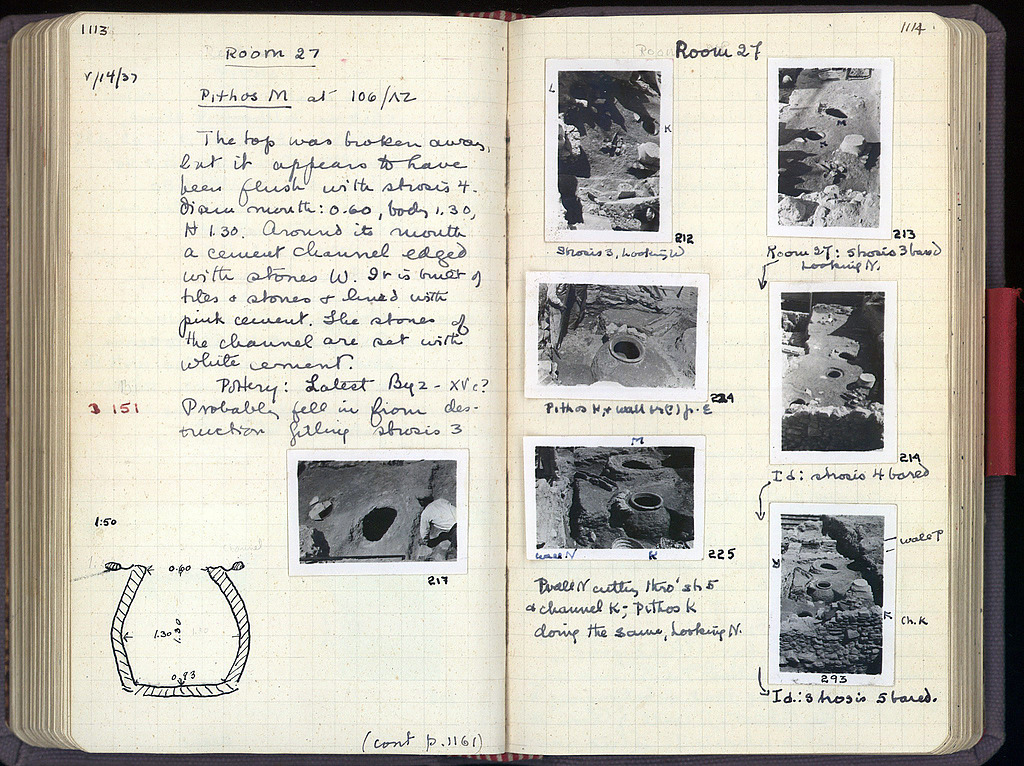 1113
Room 27
V/14/37
Pithos M at 106/ΛΖ
The top was broken away,
but it appears to have
been flush with strosis 4.
Diam mouth: 0.60, body 1.30,
H 1.30. Around its mouth
a cement channel edged
with stones W. It is built of
tiles & stones & lined with
pink cement. The stones of
the channel are set with
white cement.
Pottery: Latest Byz - XV c?
B 151
Probably fell in from des-
truction filling strosis 3
217
1:50
0.60
1.30
1.30
0.93
(cont p. 1161)
1114
Room 27
L
K
212
Strosis 3, Looking W
M
K
213
Room 27: strosis 3 bared
Looking N.
224
Pithos K, & wall fr. E
214
Id: strosis 4 bared
M
wall N
K
225
wall N cutting thro' st. 5
& channel K; Pithos K
doing the same, Looking N.
wall P
K
K
Ch. K
293
Id.: strosis 5 bared.